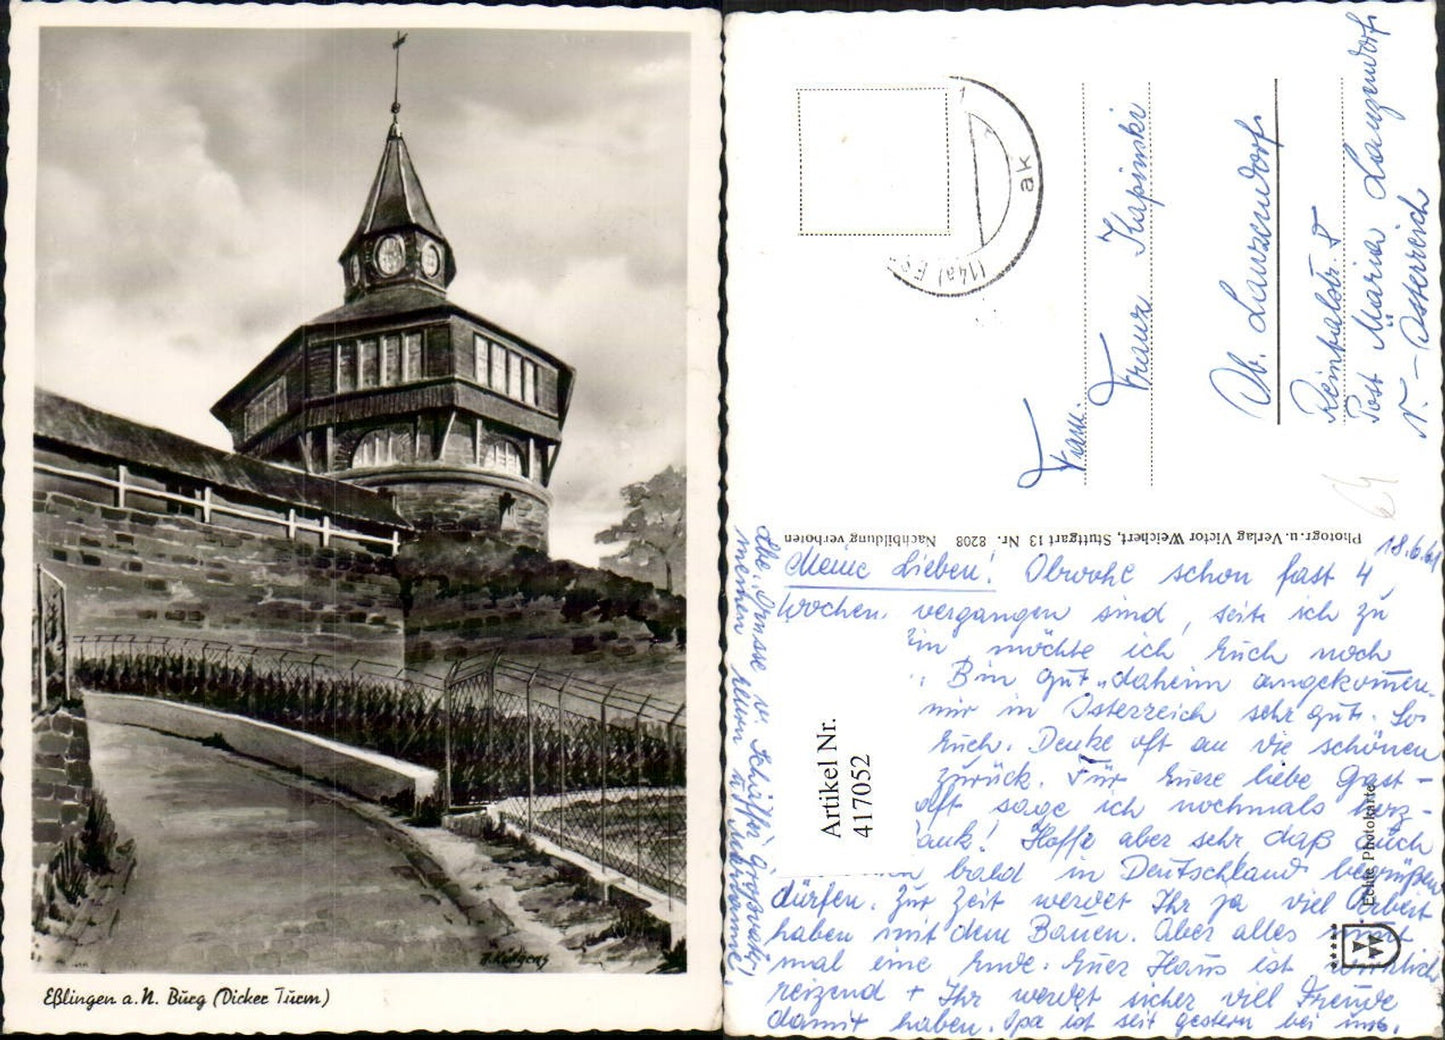 Eßlingen a. N. Burg (Dicker Turm)
ak
(14a) Es
Fam.
Franz Kapinski
Ob. Lanzendorf
Reinbalstr. 8
Post Maria Lanzendorf
N. – Österreich
Photogr. u. Verlag Victor Weichert, Stuttgart 13 Nr. 8208 Nachbildung verboten
18.6.61
Meine Lieben! Obwohl schon fast 4
Wochen vergangen sind, seit ich zu
möchte ich Euch noch
Bin gut daheim angekommen.
mir in Österreich sehr gut. So
Euch. Denke oft an die schönen
zurück. Für Euere liebe Gast-
sage ich nochmals herz-
Hoffe aber sehr daß auch
bald in Deutschland begrüßen
dürfen. Zur Zeit werdet Ihr ja viel Arbeit
haben mit dem Bauen. Aber alles nimmt
mal eine Ende. Euer Haus ist wirklich
reizend + Ihr werdet sicher viel Freude
damit haben. Opa ist seit gestern bei uns.
meinen Eltern
Artikel Nr.
417052
Echte Photokarte